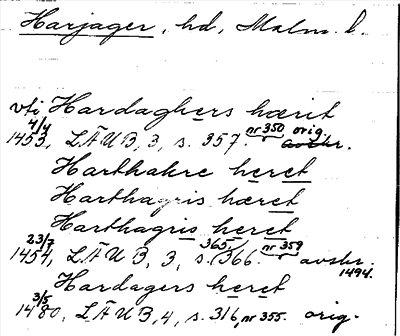 Harjager, hd, Malm. l.
vti Hardaghers hærit
4/4
1453, LÄUB, 3, s. 357. nr 350 orig. avskr.
Harthakre heret
Harthagris hæret
Harthagris heret
23/7
1454, LÄUB, 3, s. 365, 366. nr 359 avskr. 1494.
Hardagers heret
3/5
1480, LÄUB, 4, s. 316, nr 355. orig.